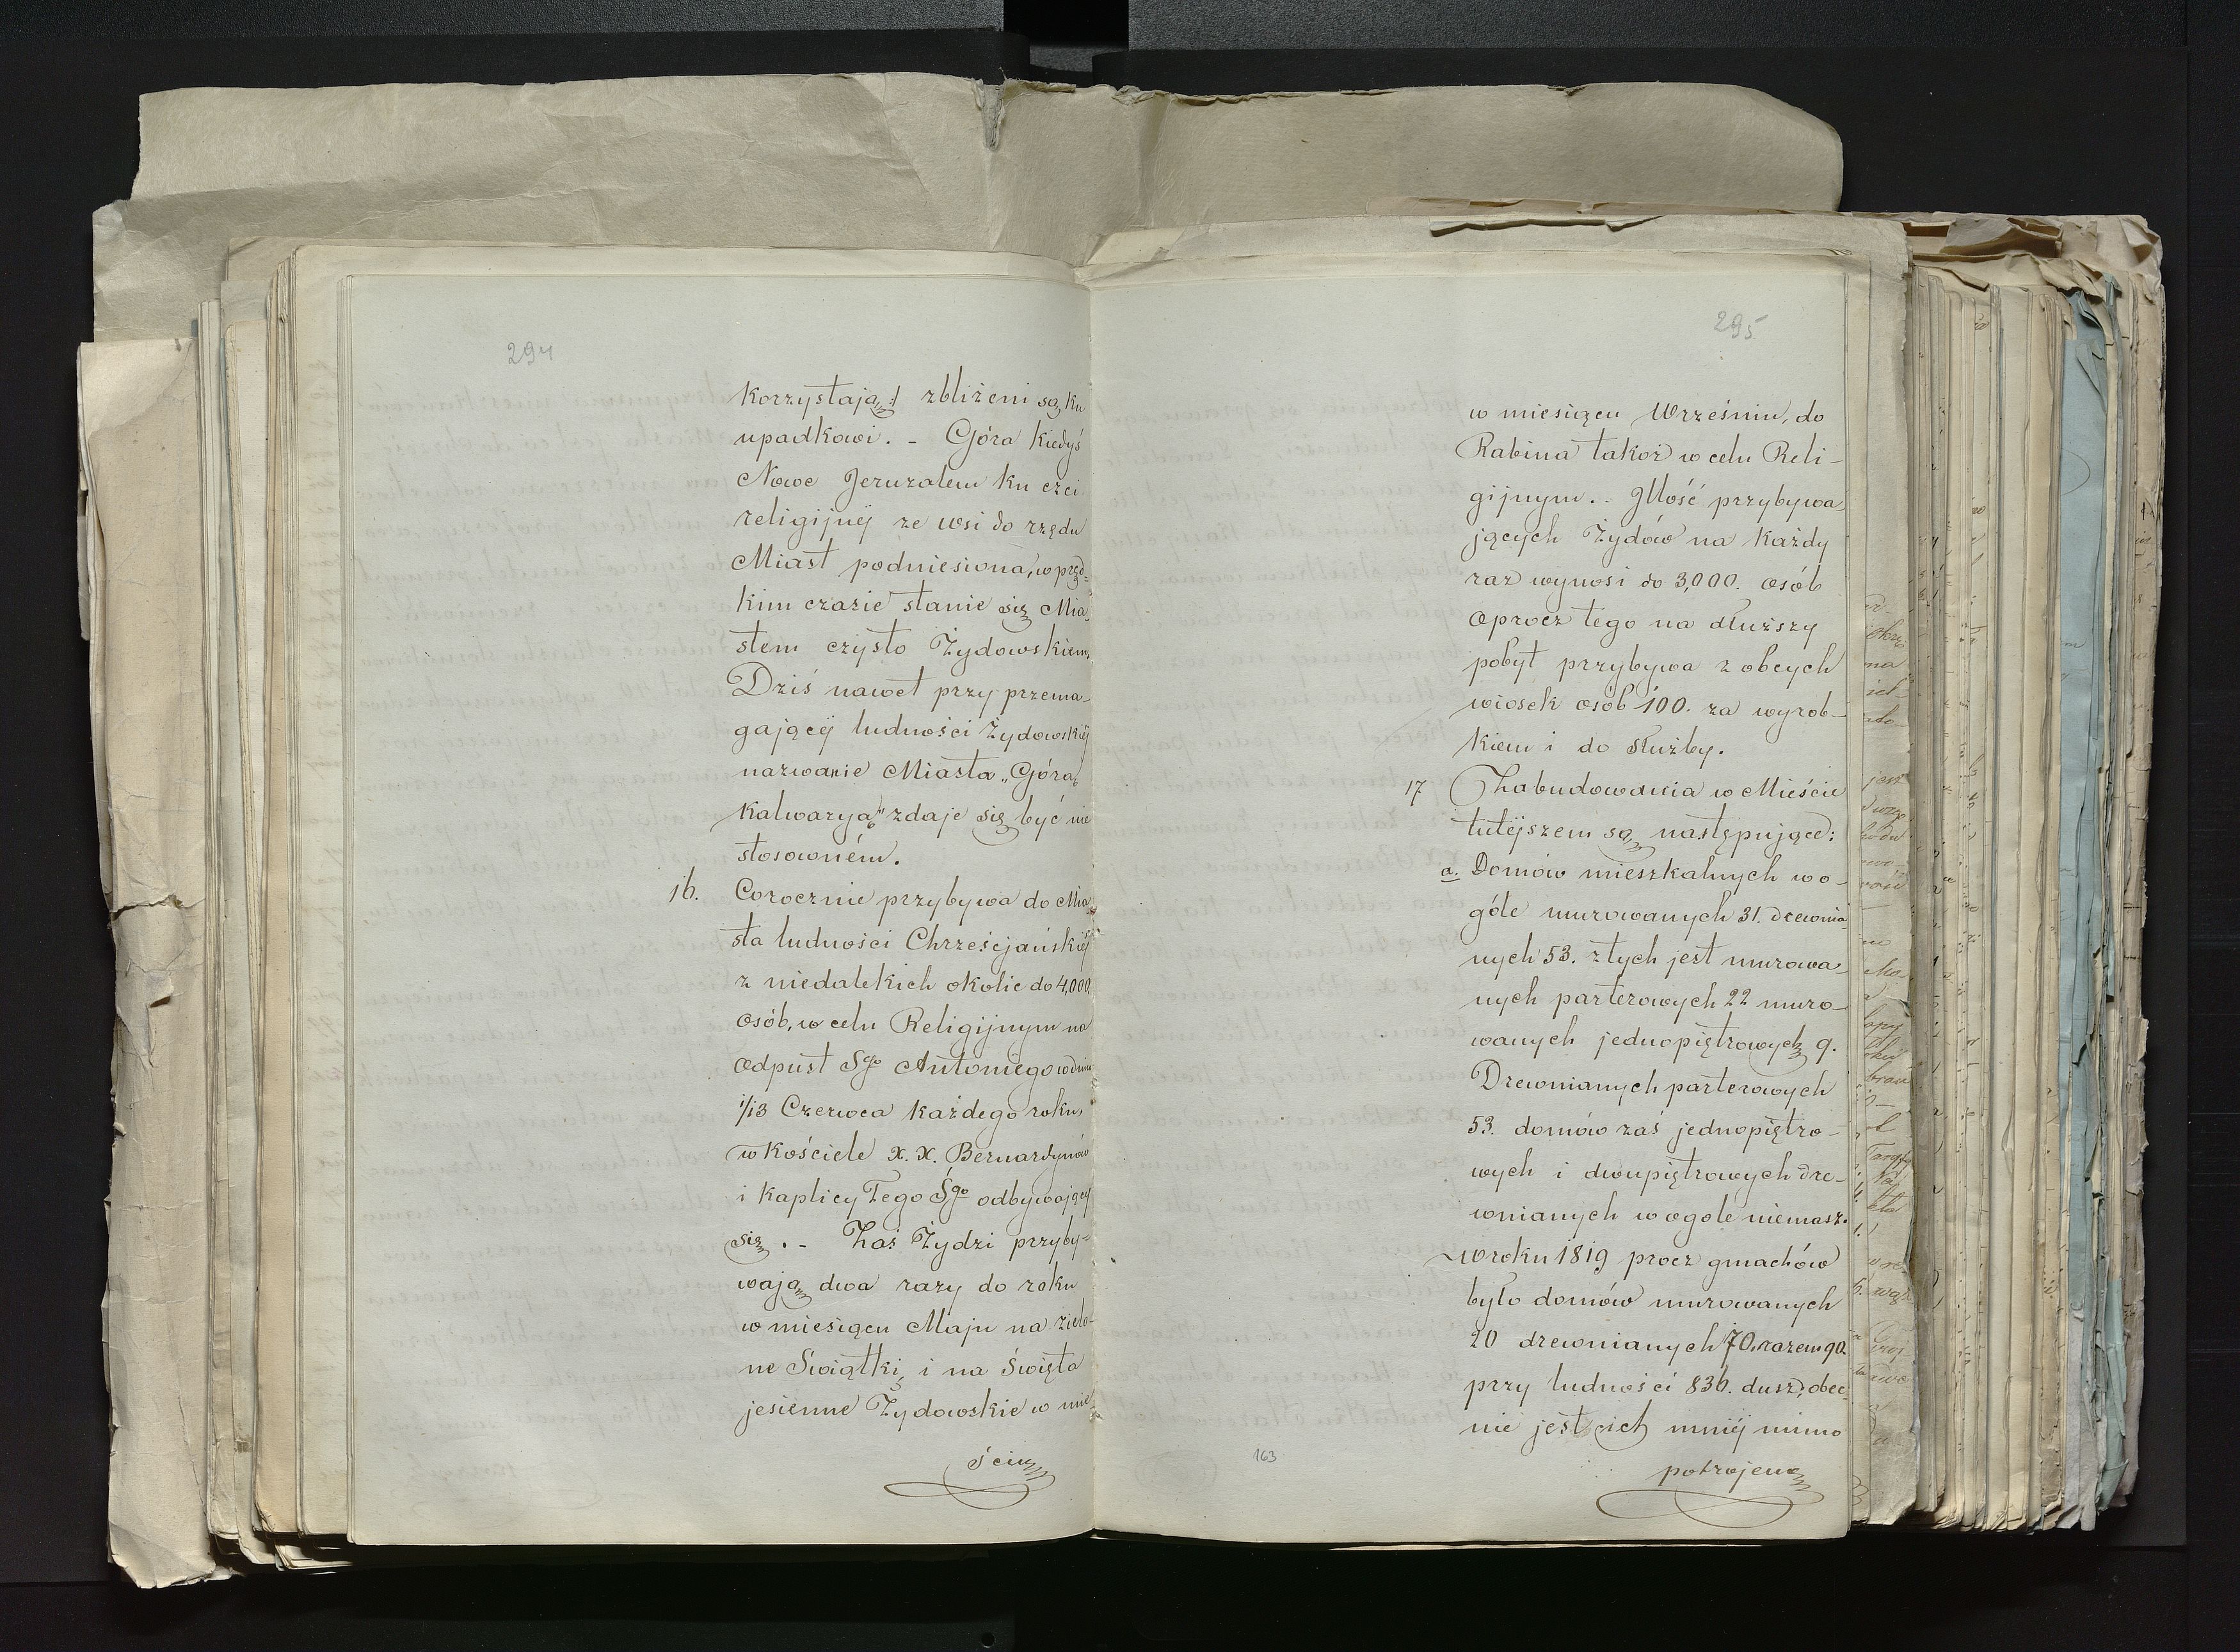 294
Korzystają :/ zbliżeni są ku
upadkowi. – Góra kiedyś
Nowe Jeruzalem ku czci
religijnéj ze wsi do rzędu
Miast podniesiona, w pręd-
kim czasie stanie się Mia-
stem czysto Żydowskiem.
Dziś nawet przy przema-
gającéj ludności Żydowskiéj
nazwanie Miasta „Góra
Kalwarya" zdaje się być nie
stosowném.
16. Corocznie przybywa do Mia-
sta ludności Chrześcjańskiéj
z niedalekich okolic do 4,000
osób, w celu Religijnym na
odpust Sgo Antoniego w dniu
1/13 Czerwca każdego roku
w Kościele X. X. Bernardynów
i Kaplicy Tego Sgo odbywający
się. – Zaś Żydzi przyby-
wają dwa razy do roku
w miesiącu Maju na zielo-
ne Świątki, i na Święta
jesienne Żydowskie w mie-
ściu
295
w miesiącu Wrześniu, do
Rabina takoż w celu Reli-
gijnym. – Jllość przybywa-
jących Żydów na każdy
raz wynosi do 3,000. osób
oprocz tego na dłuższy
pobyt przybywa z obcych
wiosek osób 100. za wyrob-
kiem i do służby.
17 Zabudowania w Mieście
tutéjszem są następujące:
a. Domów mieszkalnych wo-
góle murowanych 31. drewnia-
nych 53. z tych jest murowa-
nych parterowych 22 muro-
wanych jednopiętrowych 9.
Drewnianych parterowych
53. domów zaś jednopiętro-
wych i dwupiętrowych dre-
wnianych w ogole niemasz.
W roku 1819 procz gmachów
było domów murowanych
20 drewnianych 70. razem 90.
przy ludności 836. dusz, obec-
nie jest ich mniéj mimo
potrojenia
163